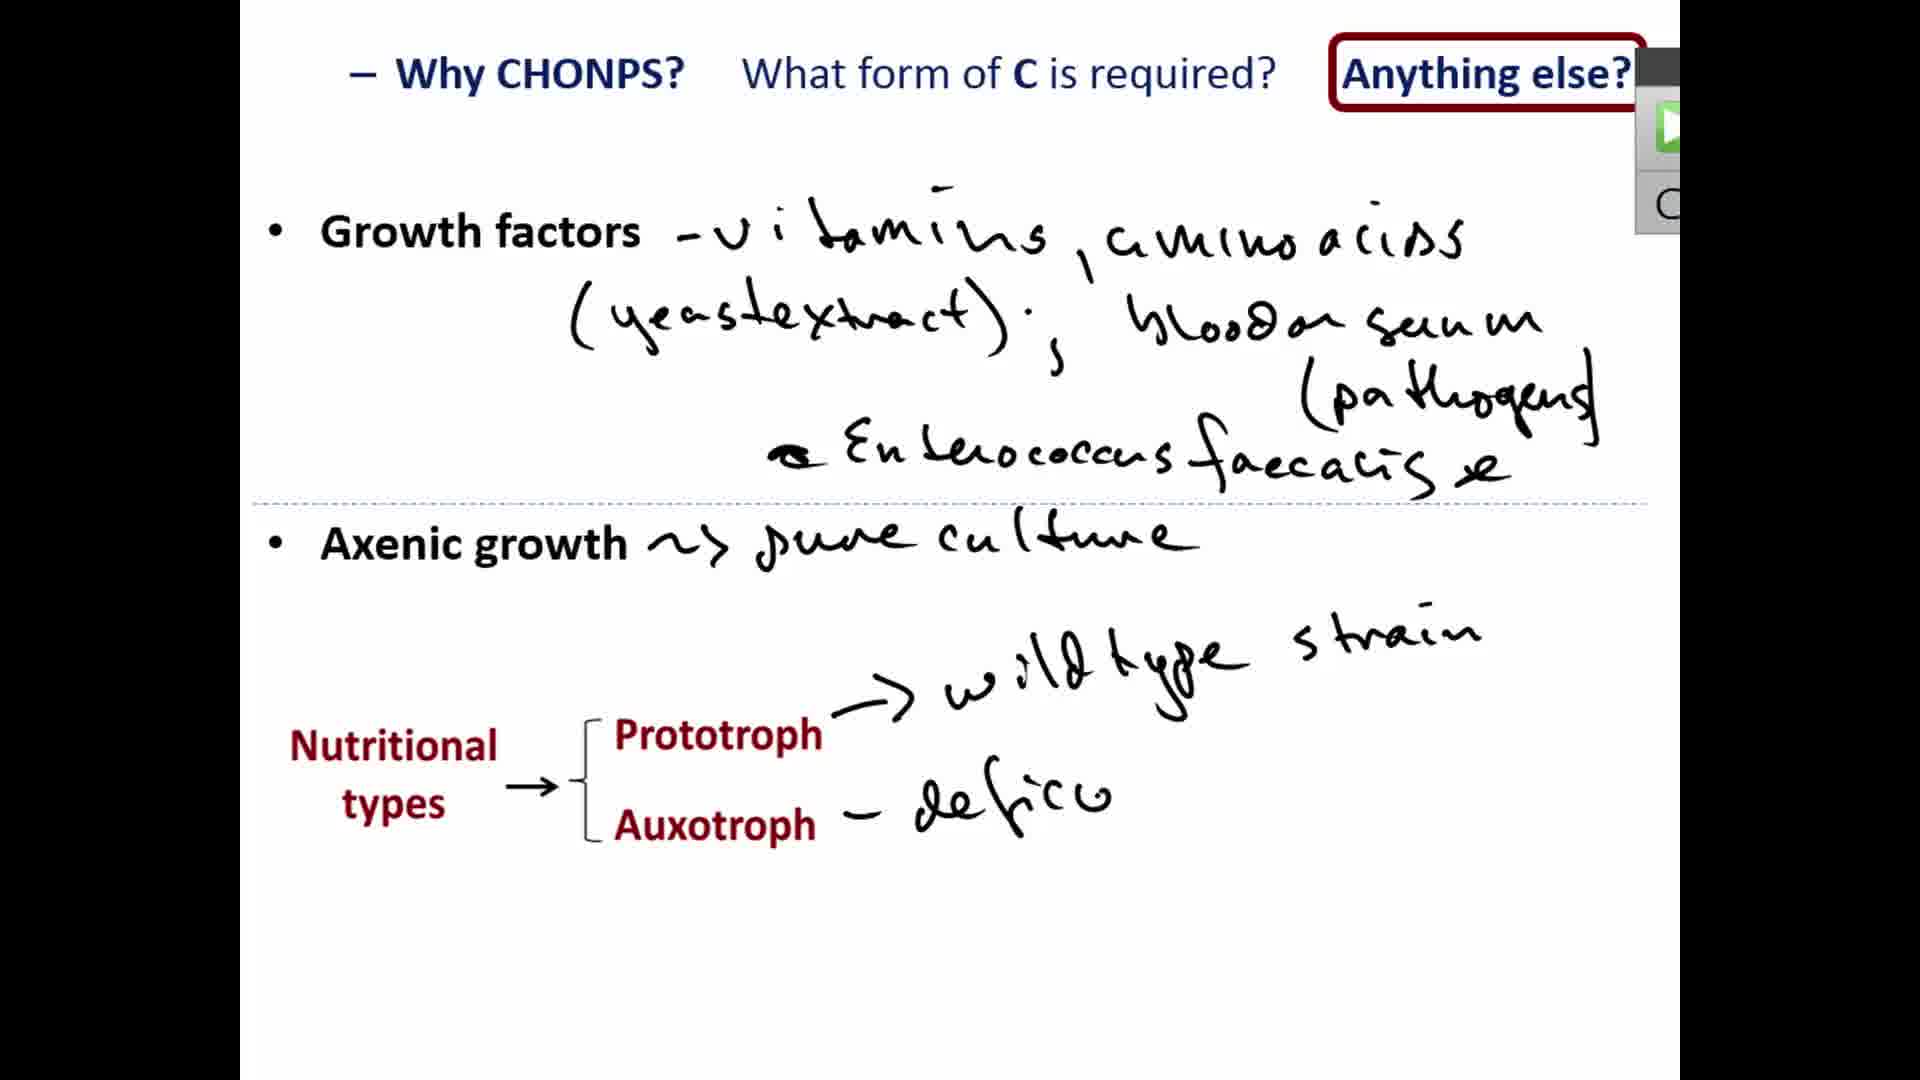 – Why CHONPS? What form of C is required? Anything else?
• Growth factors - vitamins, amino acids
(yeast extract); blood or serum
(pathogens)
- Enterococcus faecalis
• Axenic growth ~> pure culture
Nutritional types → Prototroph → wild type strain
Auxotroph – defici